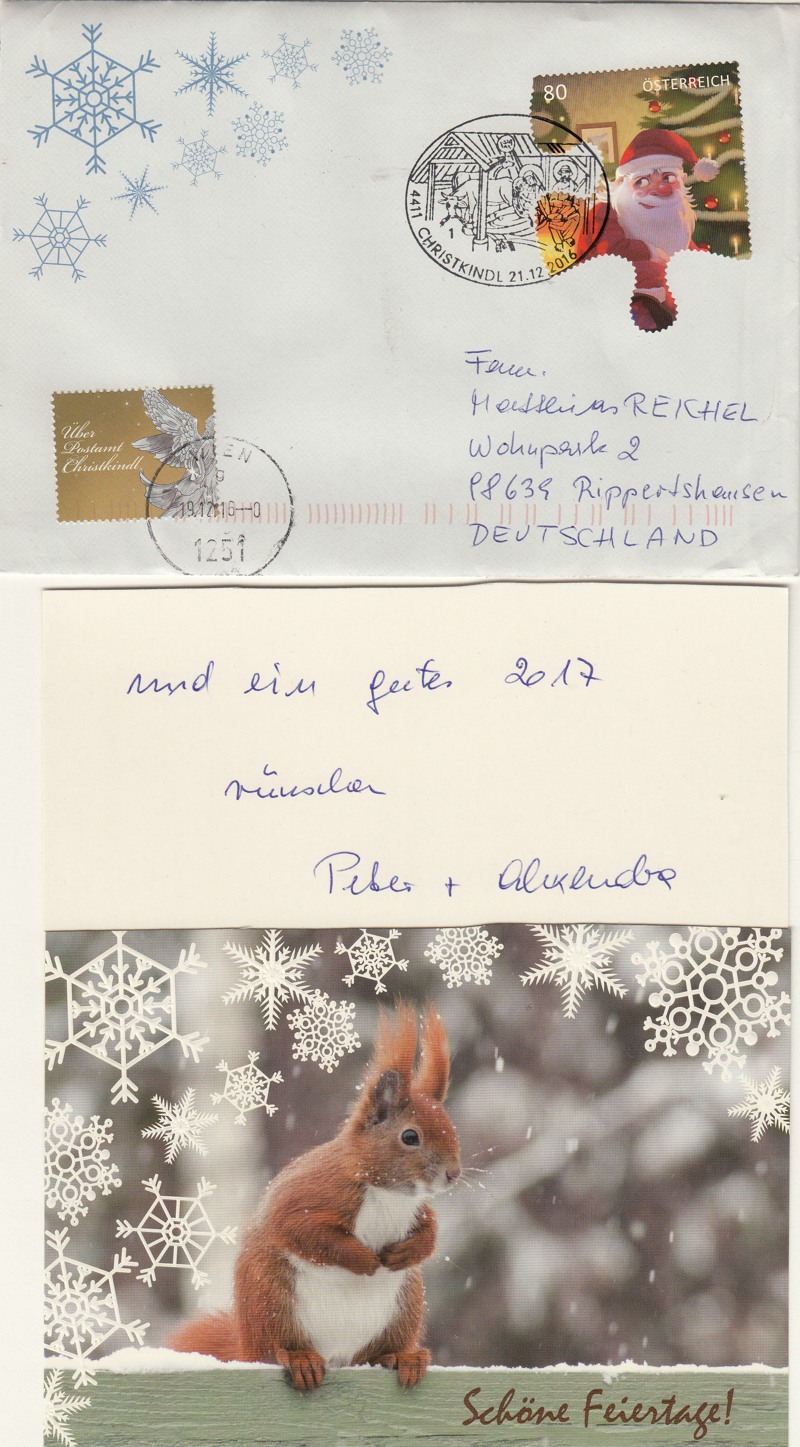 80
ÖSTERREICH
4411 CHRISTKINDL 21.12.2016
1
Fam.
Matthias REICHEL
Wohnpark 2
98639 Rippertshausen
DEUTSCHLAND
Über
Postamt
Christkindl
19.12.16--0
1251
und ein gutes 2017
wünschen
Peter +
Schöne Feiertage!